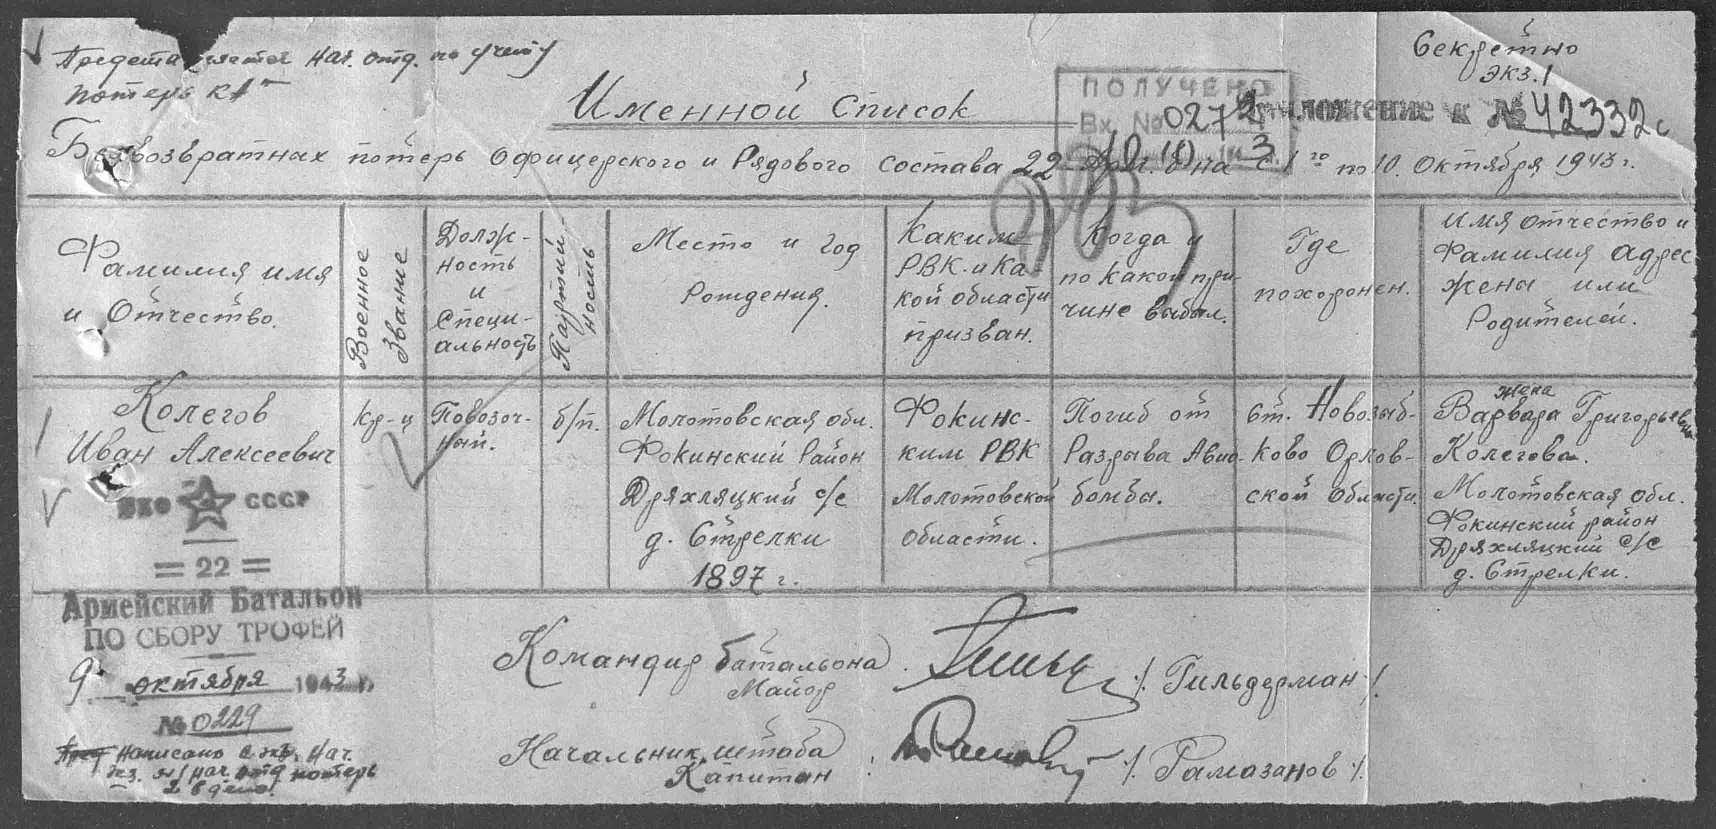 Секретно
экз. 1
нач. отд. по учету
потерь КА
ПОЛУЧЕНО
Вх. № 0272
Приложение к № 42332с
Именной список
Безвозвратных потерь офицерского и Рядового состава 22 на с 1го по 10. октября 1943 г.
Фамилия имя
и Отчество.
Военное
Звание
Долж-
ность
и
Специ-
альность
Партий-
ность
Место и год
рождения.
Каким
РВК. и ка-
кой области
призван.
Когда и
по какой при-
чине выбыл.
Где
похоронен.
Имя отчество и
Фамилия адрес
жены или
Родителей.
Колегов
Иван Алексеевич
кр-ц
Повозоч-
ный.
б/п.
Молотовская обл.
Фокинский Район
Дряхляцкий с/с
д. Стрелки
1897 г.
Фокинс-
ким РВК
Молотовской
области.
Погиб от
Разрыва Авио-
бомбы.
ст. Новозыб-
ково Орлов-
ской области
жена
Варвара Григорьевна
Колегова.
Молотовская обл.
Фокинский район
Дряхляцкий с/с
д. Стрелки.
НКО СССР
22
Армейский Батальон
ПО СБОРУ ТРОФЕЙ
9 октября 1943 г.
№ 0229
Написано 2 экз. Нач.
экз. №1 нач. отд потерь
2 в дело.
Командир батальона
Майор /Гильдерман/
Начальник штаба
Капитан /Рамазанов/.